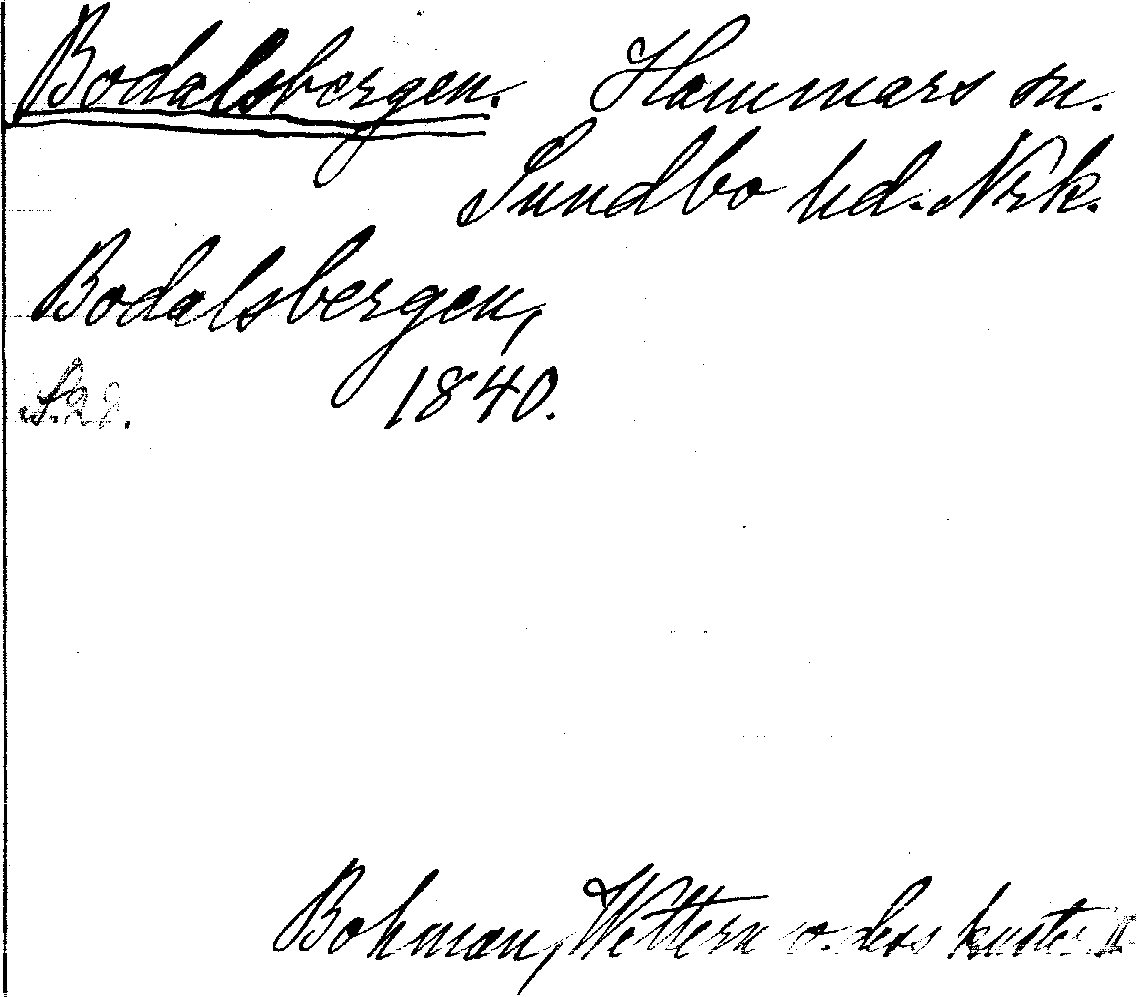 Bodalsbergen. Hammars sn.
Sundbo hd. Nrk.
Bodalsbergen,
S. 28. 1840.
Bohman, Wettern o. dess kuster II